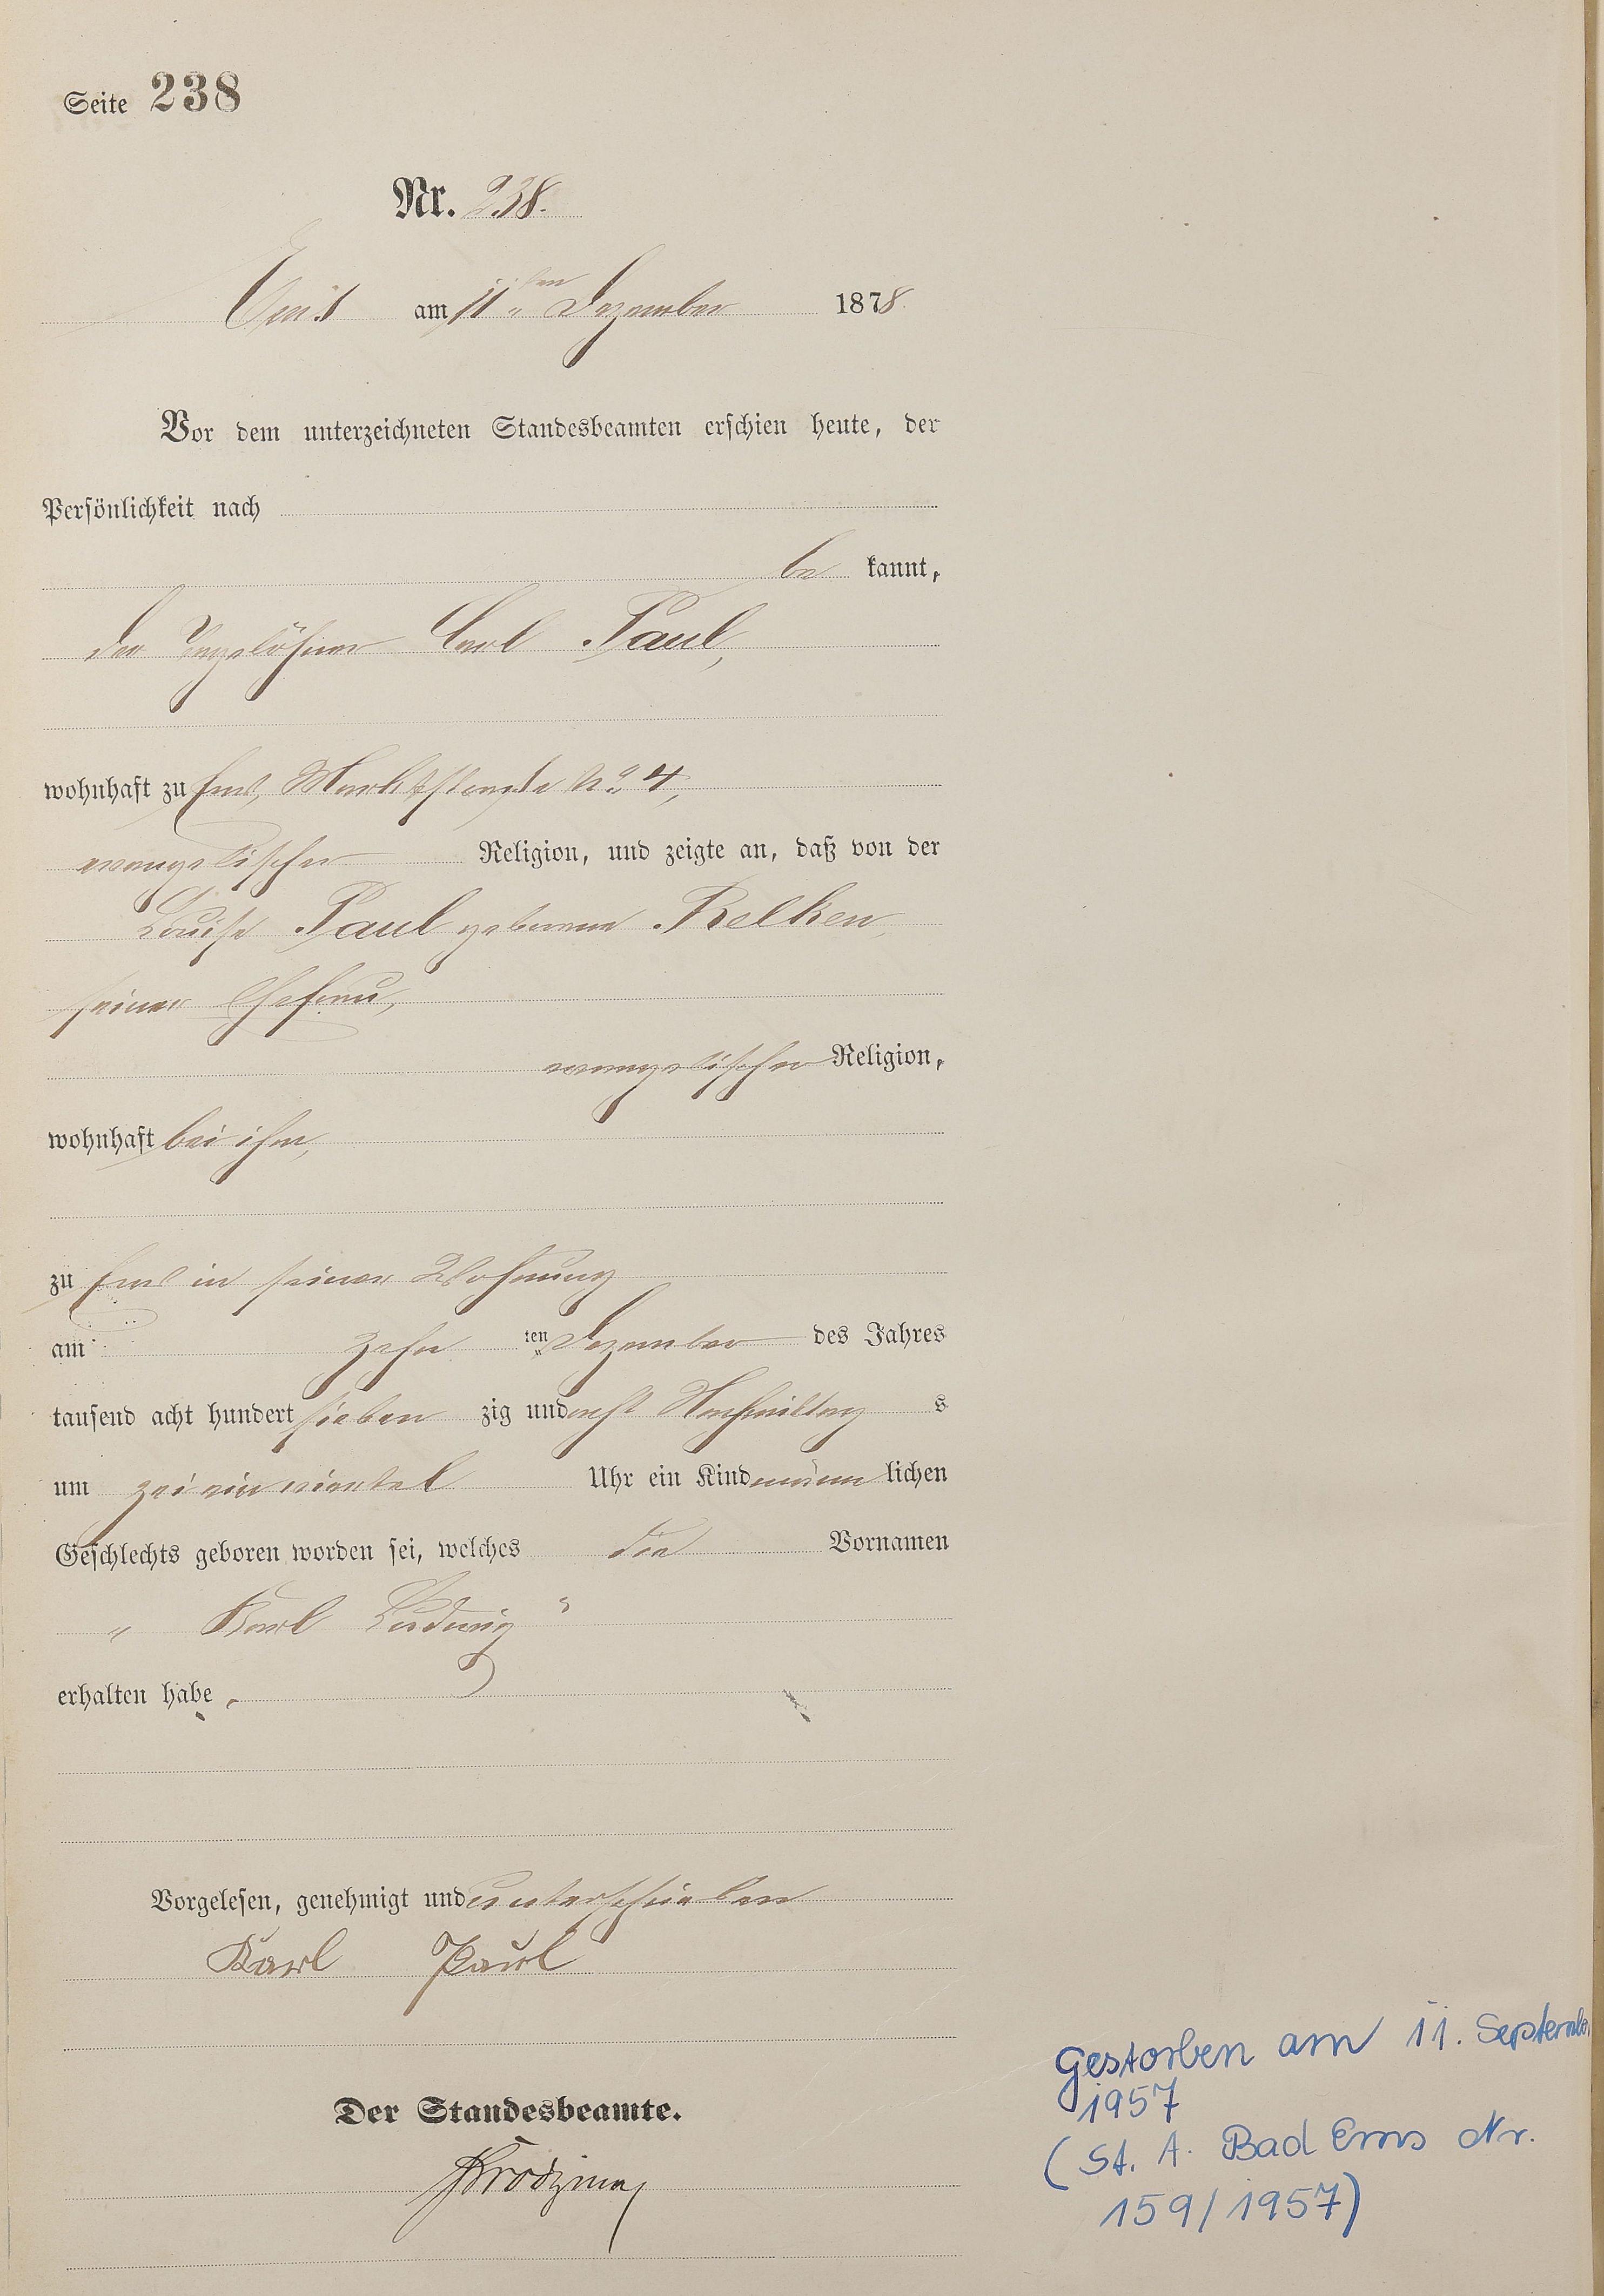 Seite 238
Nr. 238.
Ems am 11ten Dezember 1878.
Vor dem unterzeichneten Standesbeamten erschien heute, der
Persönlichkeit nach
be kannt,
der Tagelöhner Carl Paul,
wohnhaft zu Ems, Marktstraße No. 4,
evangelischer Religion, und zeigte an, daß von der
Louise Paul geborenen Relken,
seiner Ehefrau,
evangelischer Religion,
wohnhaft bei ihm,
zu Ems in seiner Wohnung
am zehn ten Dezember des Jahres
tausend acht hundert sieben zig und acht Nachmittag s
um ein viertel Uhr ein Kind männ lichen
Geschlechts geboren worden sei, welches die Vornamen
" Karl Ludwig "
erhalten habe.
Vorgelesen, genehmigt und unterschrieben
Karl Paul
Der Standesbeamte.
gestorben am 11. September
1957
(St. A. Bad Ems Nr.
159/1957)